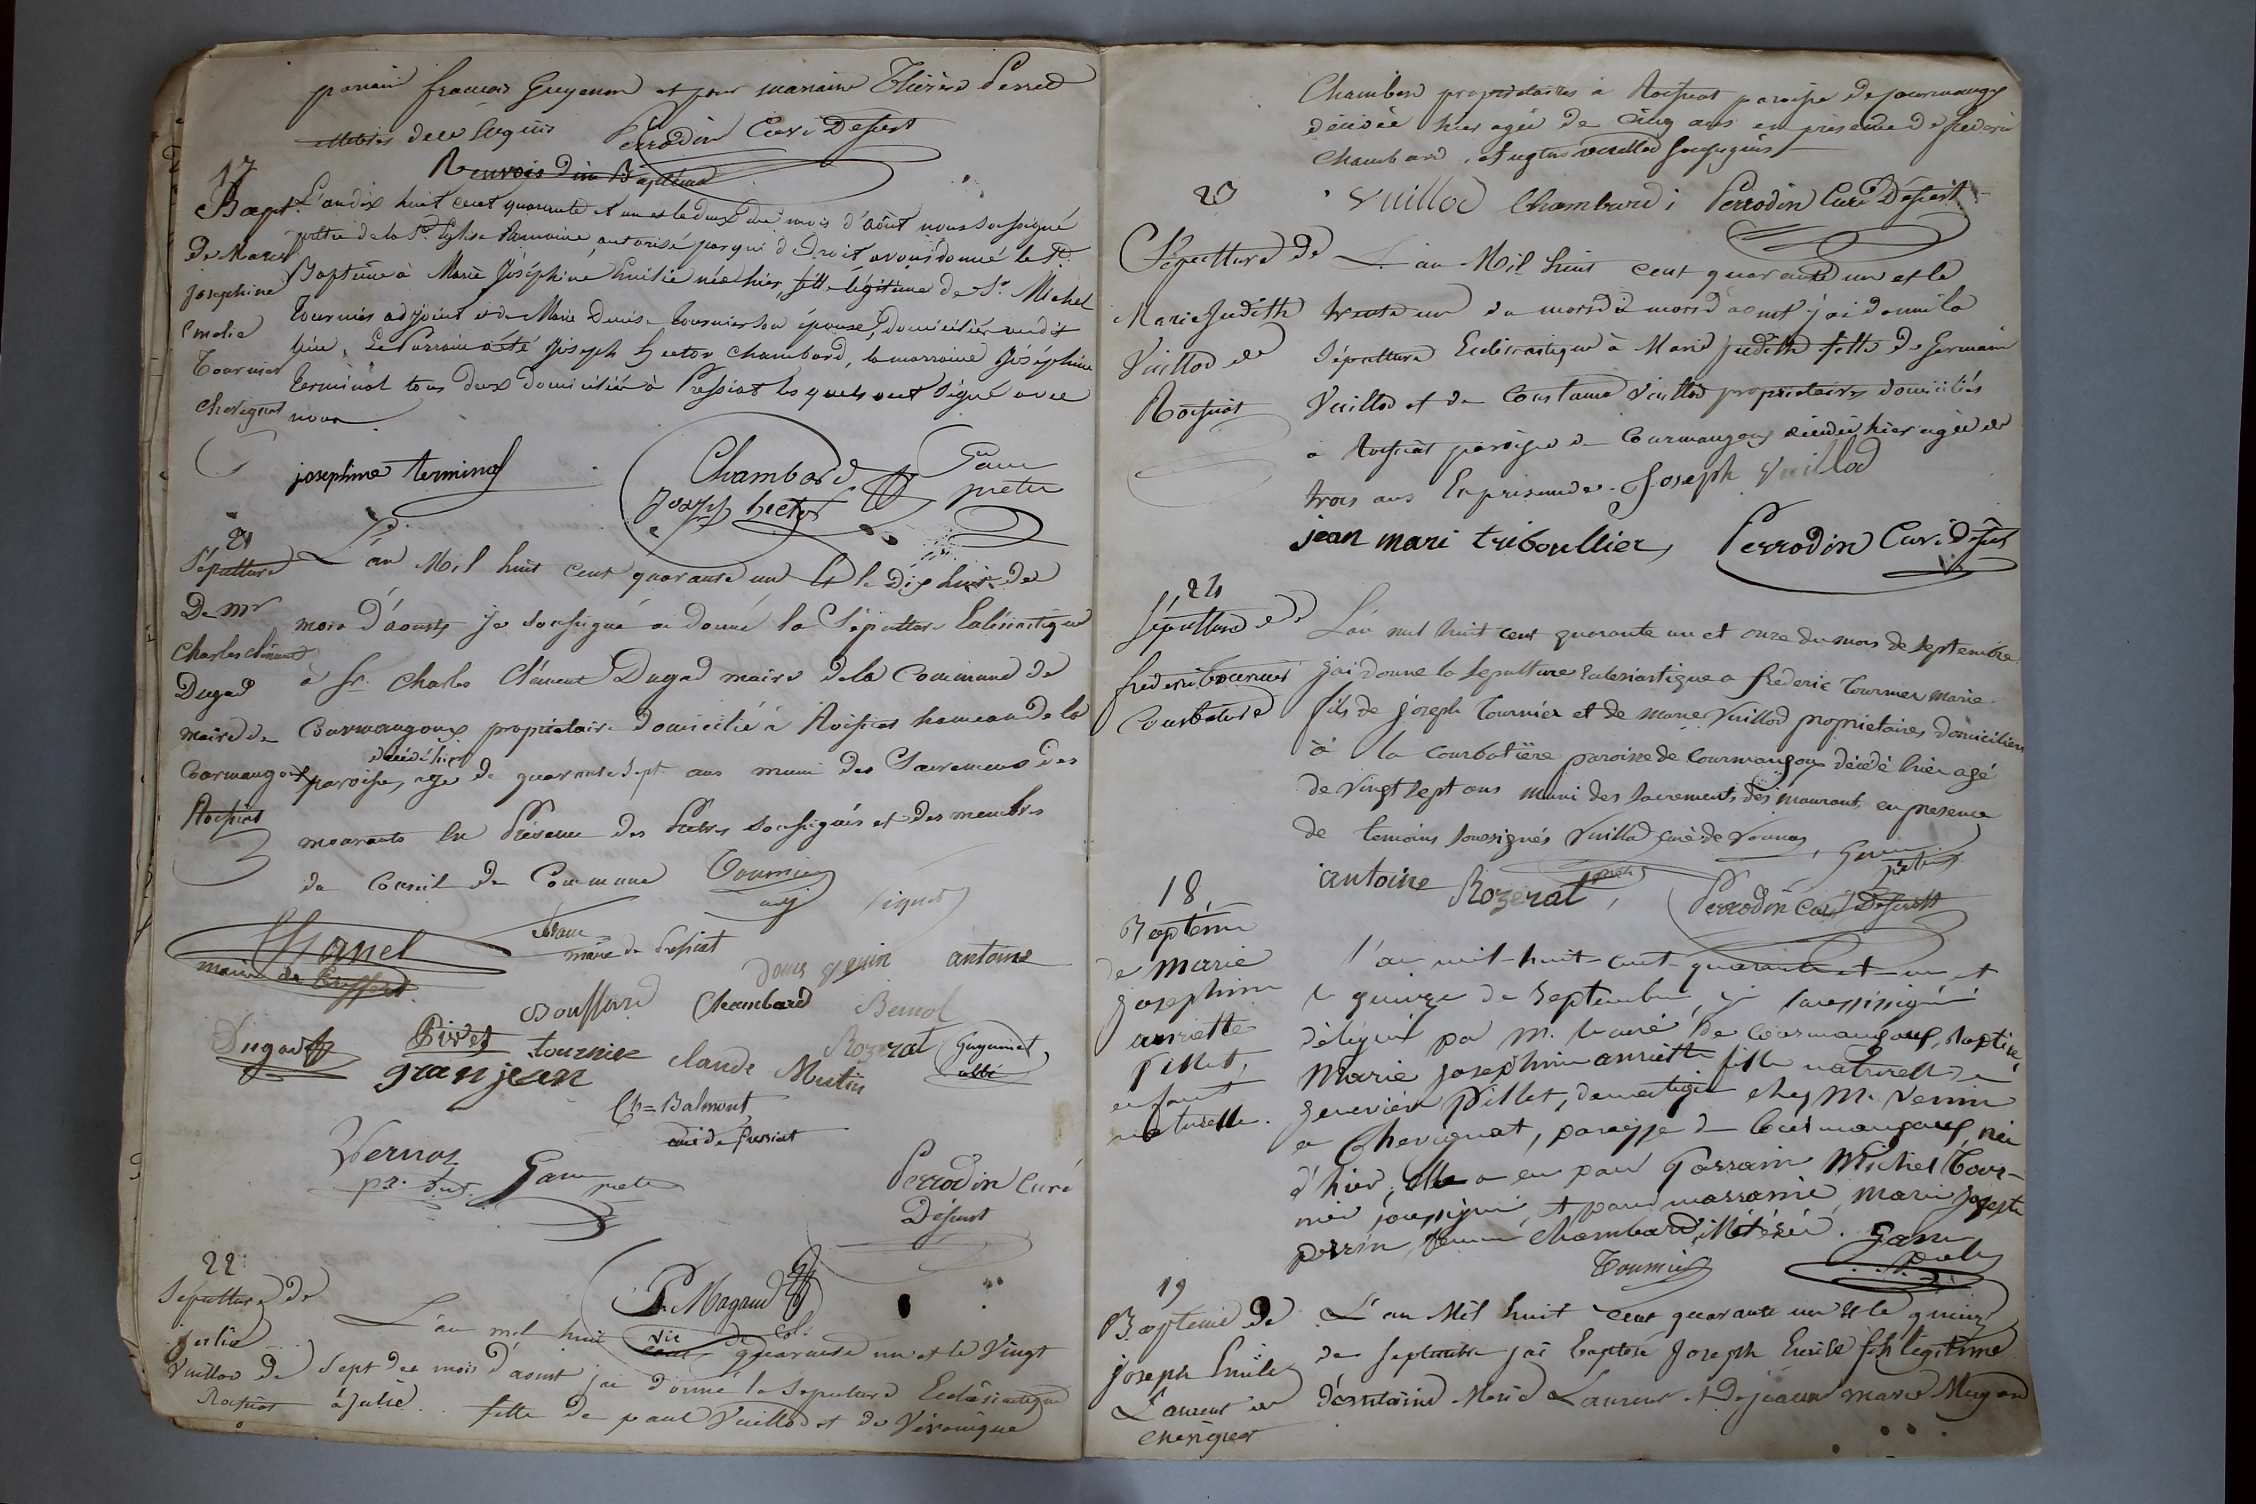 parain françois Guyenon et pour maraine Thérèse Perret
illitérés dece Réquis Perrodin Curé Desert
Renvois d'un Baptême
17
Bapt. L'an dix huit cent quarante et un et le deux du mois d'août nous soussigné
prêtre de la Ste Eglise Romaine, autorisé par qui de Droit avons donné le St.
De Marie Baptême à Marie Joséphine Emélie née hier, fille légitime de Sr Michel
josephine Tournier adjoint et de Marie Denise Tournier son épouse, domiciliés au dit
Emelie lieu. Le Parrain a été Joseph Hector Chambard, la marraine Joséphine
Tournier Terminal tous deux domiciliés à Pressiat lesquels ont signé avec
Chevignat nous
josephine terminal Chambard Joseph hector Gam prêtre
21
Sépulture L'an Mil huit cent quarante un et le dix huit de
De Mr mois d'aoust je soussigné ai donné la Sépulture Eclésiastique
Charles Clément à Sr. Charles Clément Dugad maire de la Commune de
Dugad
maire de Courmangoux propriétaire domicilié à Roissiat hameau de la
décédé hier
Courmangoux paroisse, age de quarante sept ans muni des Sacremens des
Roissiat mourants en Présence des Prêtres soussignés et des membres
du Conseil de Commune Tournier adj
Chanel
maire de
maire de Pressiat
antoine
Bouffard Chambard
Dugad Pivet tournier claude Mutin Rozerat Guyennet abbé
granjean
Ch= Balmont
curé de Pressiat
Vernos
Gam prêtre Perrodin Curé
Desert
P. Magaud
vic de Col.
22
Sépulture de L'an mil huit cent quarante un et le Vingt
julie
Vuillod de Sept du mois d'aoust jai donné la Sepulture Eclésiastique
Roissiat à julie fille de paul Vuillod et de Véronique
Chambard propriétaires à Roissiat paroisse de Courmangoux
décédée hier agée de Cinq ans en présence de frederic
Chambard, et vuillod soussignés
Vuillod Chambard Perrodin Curé Désert
23
Sépulture de L'an Mil huit cent quarante un et le
Marie Judith trente un du mois d'aout j'ai donné la
Vuillod de Sépulture Eclésiastique à Marie Judith fille de Germain
Roissiat Vuillod et de Constance Vuillod propriétaires domiciliés
à Roissiat paroisse de Courmangoux décédée hier agée de
trois ans En présence de Joseph Vuillod
jean mari triboullier, Perrodin Curé Desert
24
Sépulture de L'an mil huit cent quarante un et onze du mois de septembre
frederic tournier jai donné la sepulture Eclesiastique a frederic Tournier marie
Courbature fils de joseph Tournier et de Marie Vuillod propriétaires domiciliés
à la Courbatière paroisse de Courmangoux décédé hier agé
de vingt sept ans muni des sacrements des mourant en presence
de temoins soussignés Vuillod curé de Vernoux, Gam prêtre
antoine Rozerat, Perrodin Curé Desert
18
Baptême L'an mil-huit-cent-quarante-et-un et
de Marie le quinze de Septembre, je soussigné
josephine délégué par M. le curé de Courmangoux, baptisé
anriette Marie josephine anriette fille naturelle de
Pillet, Genevieve Pillet, domestique chez M. Venin
enfant a Chevignat, paroisse de Courmangoux, née
naturelle. d'hier; elle a eu pour Parrain Michel Tour-
nier soussigné, et pour marraine, Marie Josephe
perrin femme Chambard, illétérée. Gam
Tournier prêtre
19
Baptême de L'an Mil huit Cent quarante un et le quinze
joseph Emile de Septembre jai baptisé Joseph Emile fils légitime
Laurent de d'Antoine Marie Laurent et de jeanne marie Mugon
Chevignat